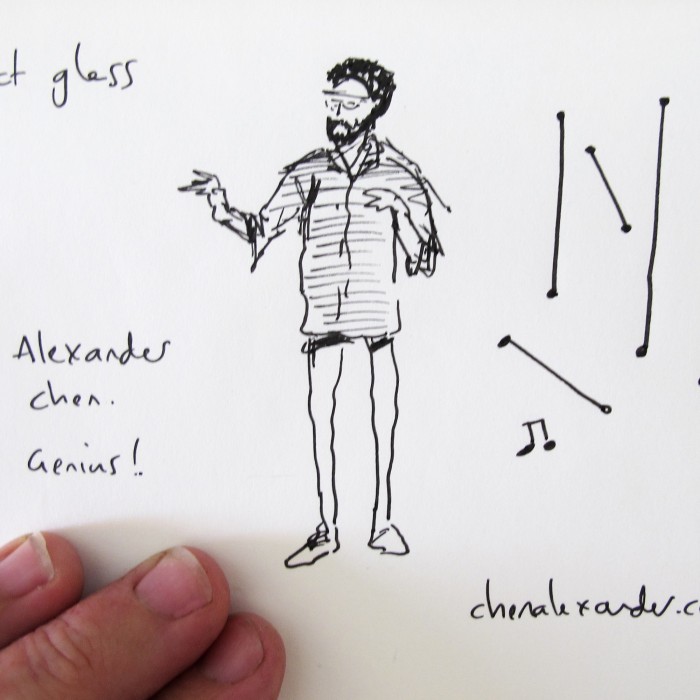 ct glass
Alexander
chen.
Genius!
chenalexander.c